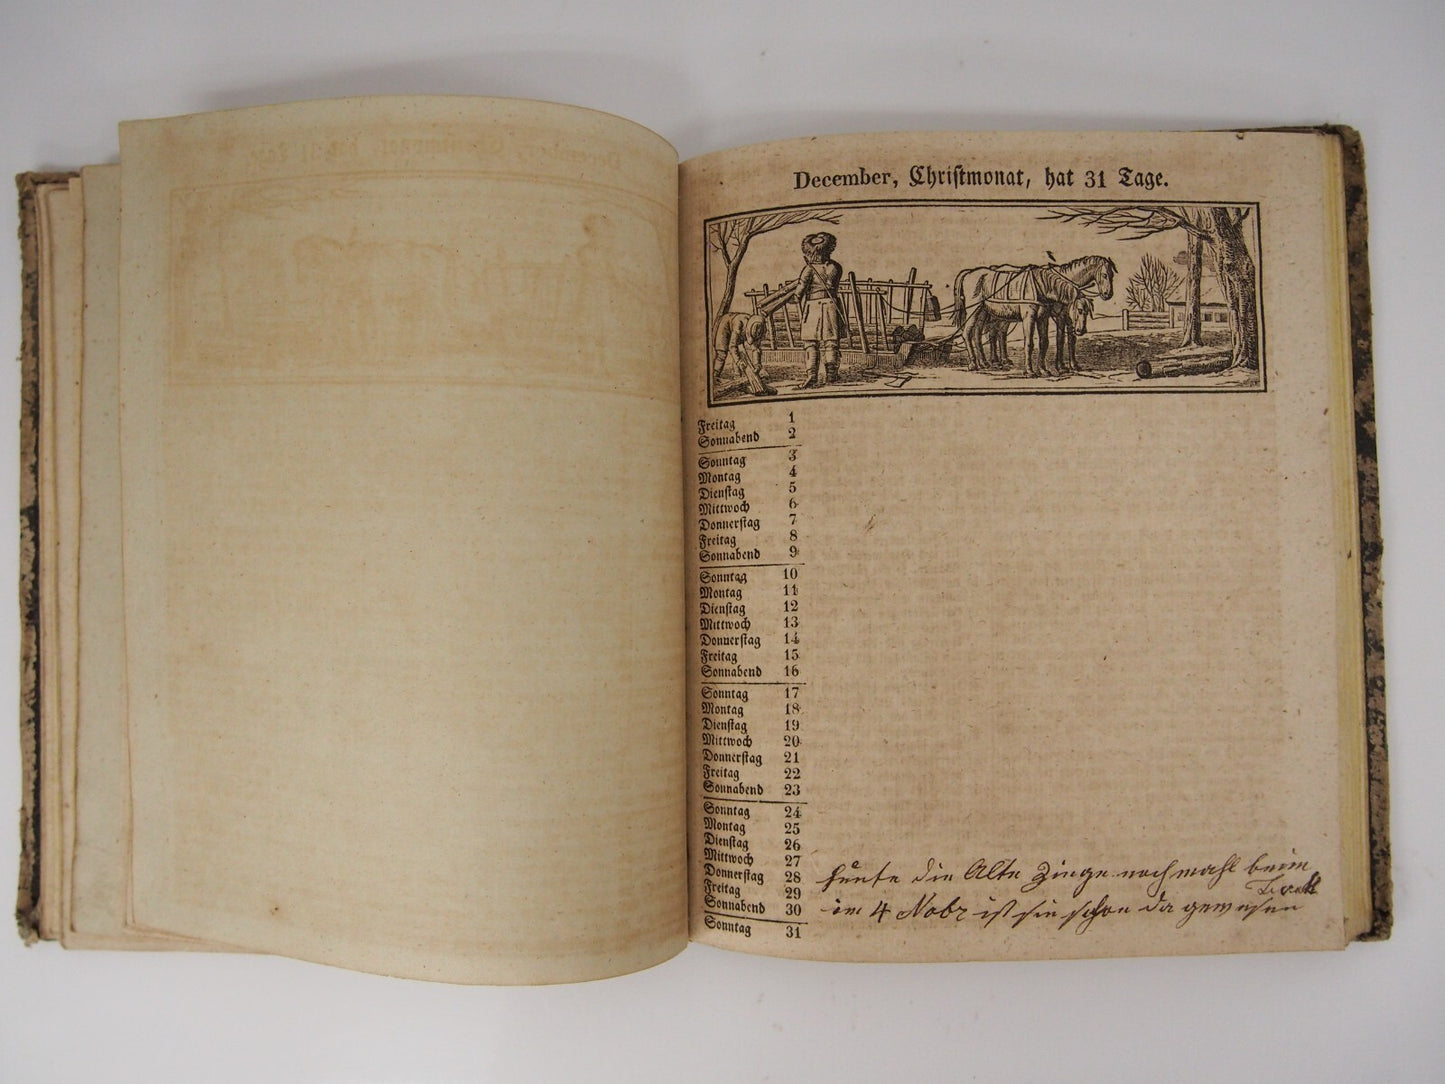 December, Christmonat, hat 31 Tage.
Freitag 1
Sonnabend 2
Sonntag 3
Montag 4
Dienstag 5
Mittwoch 6
Donnerstag 7
Freitag 8
Sonnabend 9
Sonntag 10
Montag 11
Dienstag 12
Mittwoch 13
Donnerstag 14
Freitag 15
Sonnabend 16
Sonntag 17
Montag 18
Dienstag 19
Mittwoch 20
Donnerstag 21
Freitag 22
Sonnabend 23
Sonntag 24
Montag 25
Dienstag 26
Mittwoch 27
Donnerstag 28
Freitag 29
Sonnabend 30
Sonntag 31
die Alte Zinge nochmahl beim
im 4 Nobr ist sie schon da gewesen